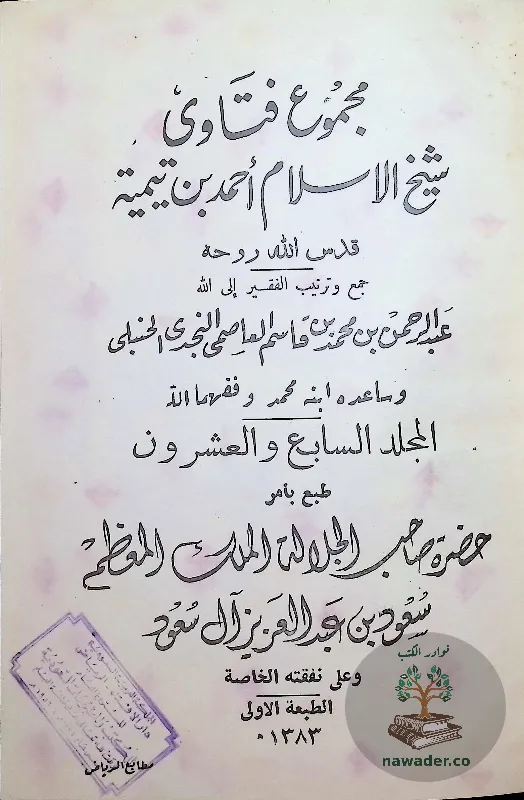 مجموع فتاوى
شيخ الاسلام أحمد بن تيمية
قدس الله روحه
جمع وترتيب الفقير إلى الله
عبد الرحمن بن محمد بن قاسم العاصمي النجدي الحنبلي
وساعده ابنه محمد وفقهما الله
المجلد السابع والعشرون
طبع بأمر
حضرة صاحب الجلالة الملك المعظم
سعود بن عبد العزيز آل سعود
وعلى نفقته الخاصة
الطبعة الاولى
١٣٨٣
مطابع الرياض
نوادر الكتب
nawader.co